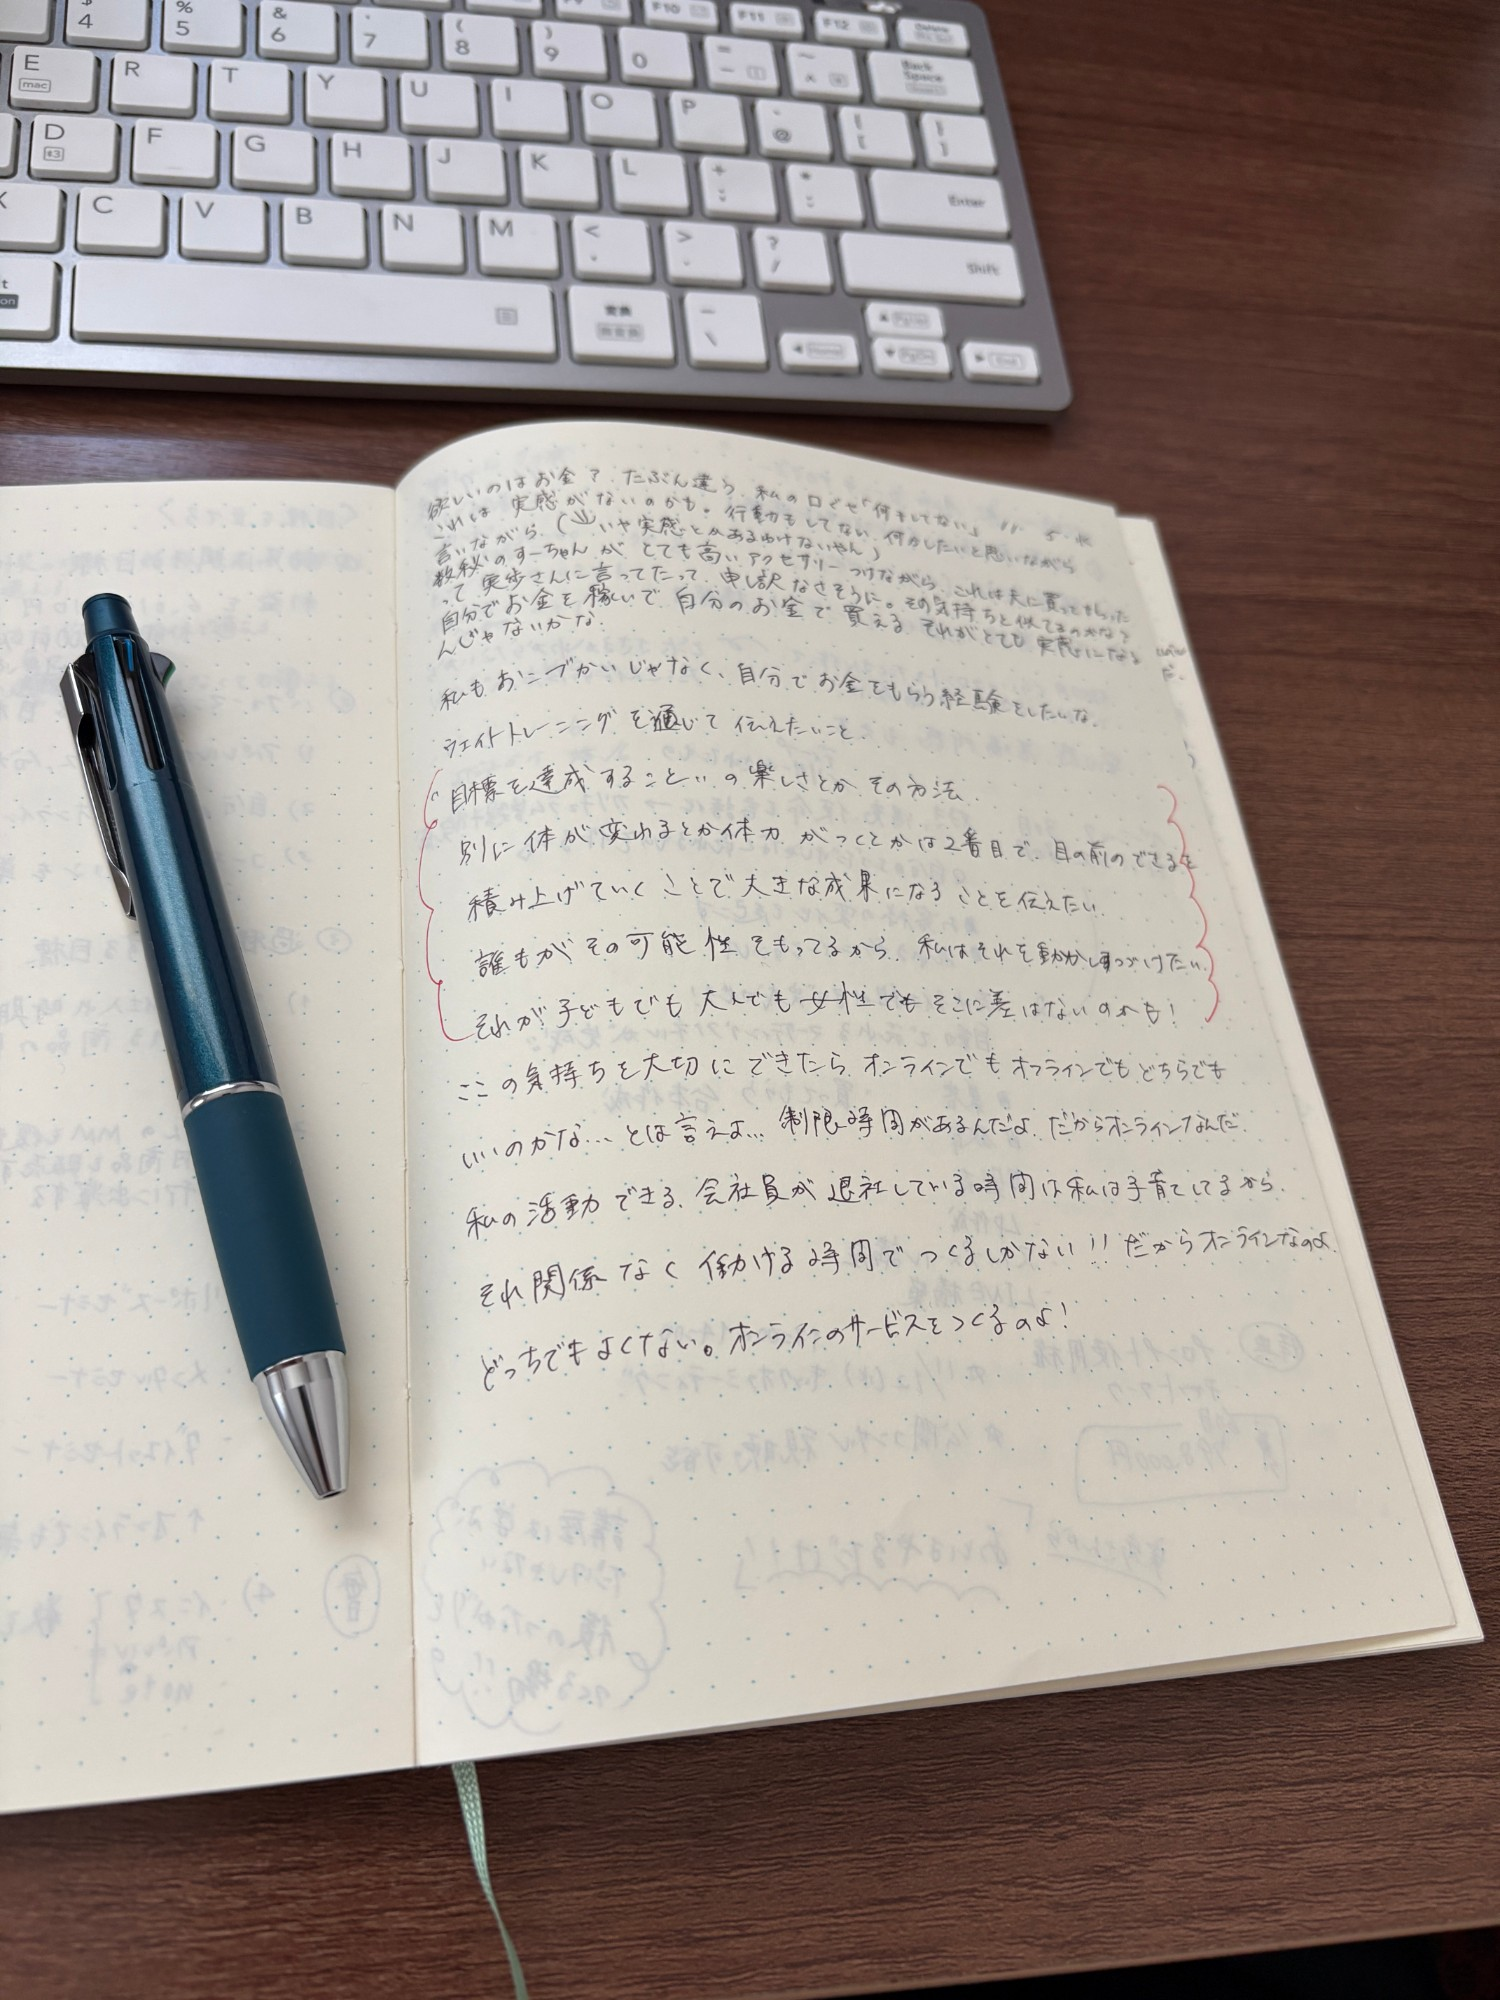 $ 4
% 5
& 6
' 7
( 8
) 9
0
= -
~ ^
F10
F11
F12
Delete
Back Space
E
mac
R
T
Y
U
I
O
P
@
[
]
D
F
G
H
J
K
L
+ ;
* :
Enter
C
V
B
N
M
< ,
> .
? /
Shift
変換
\
Home
PgUp
PgDn
End
欲しいのはお金? たぶん違う、私の口ぐせ「何もしてない」
これは 実感がないのかも。行動もしてない、何かしたいと思いながら
言いながら、( いや実感とかあるわけないやん)
教秘のすーちゃんが とても高いアクセサリーつけながら、これは夫に買ってもらった
って 実歩さんに言ってたって、申し訳なさそうに。その気持ちと似てるのかな?
自分でお金を稼いで 自分のお金で買える それがとても 実感になる
んじゃないかな。
私も おこづかいじゃなく、自分でお金をもらう経験をしたいな。
ウェイトトレーニングを通じて 伝えたいこと、
目標を達成すること〃の楽しさとか その方法
別に体が変わるとか体力がつくとかは2番目で、目の前のできるを
積み上げていくことで大きな成果になることを伝えたい
誰もがその可能性をもってるから、私はそれを動かしつづけたい。
それが子どもでも大人でも女性でもそこに差はないのかも!
ここの気持ちを大切にできたら オンラインでもオフラインでもどちらでも
いいのかな... とは言えよ... 制限時間があるんだよ、だからオンラインなんだ。
私の活動できる、会社員が退社している時間は私は子育てしてるから、
それ関係なく働ける時間でつくるしかない!! だからオンラインなのよ
どっちでもよくない。オンラインのサービスをつくるのよ!